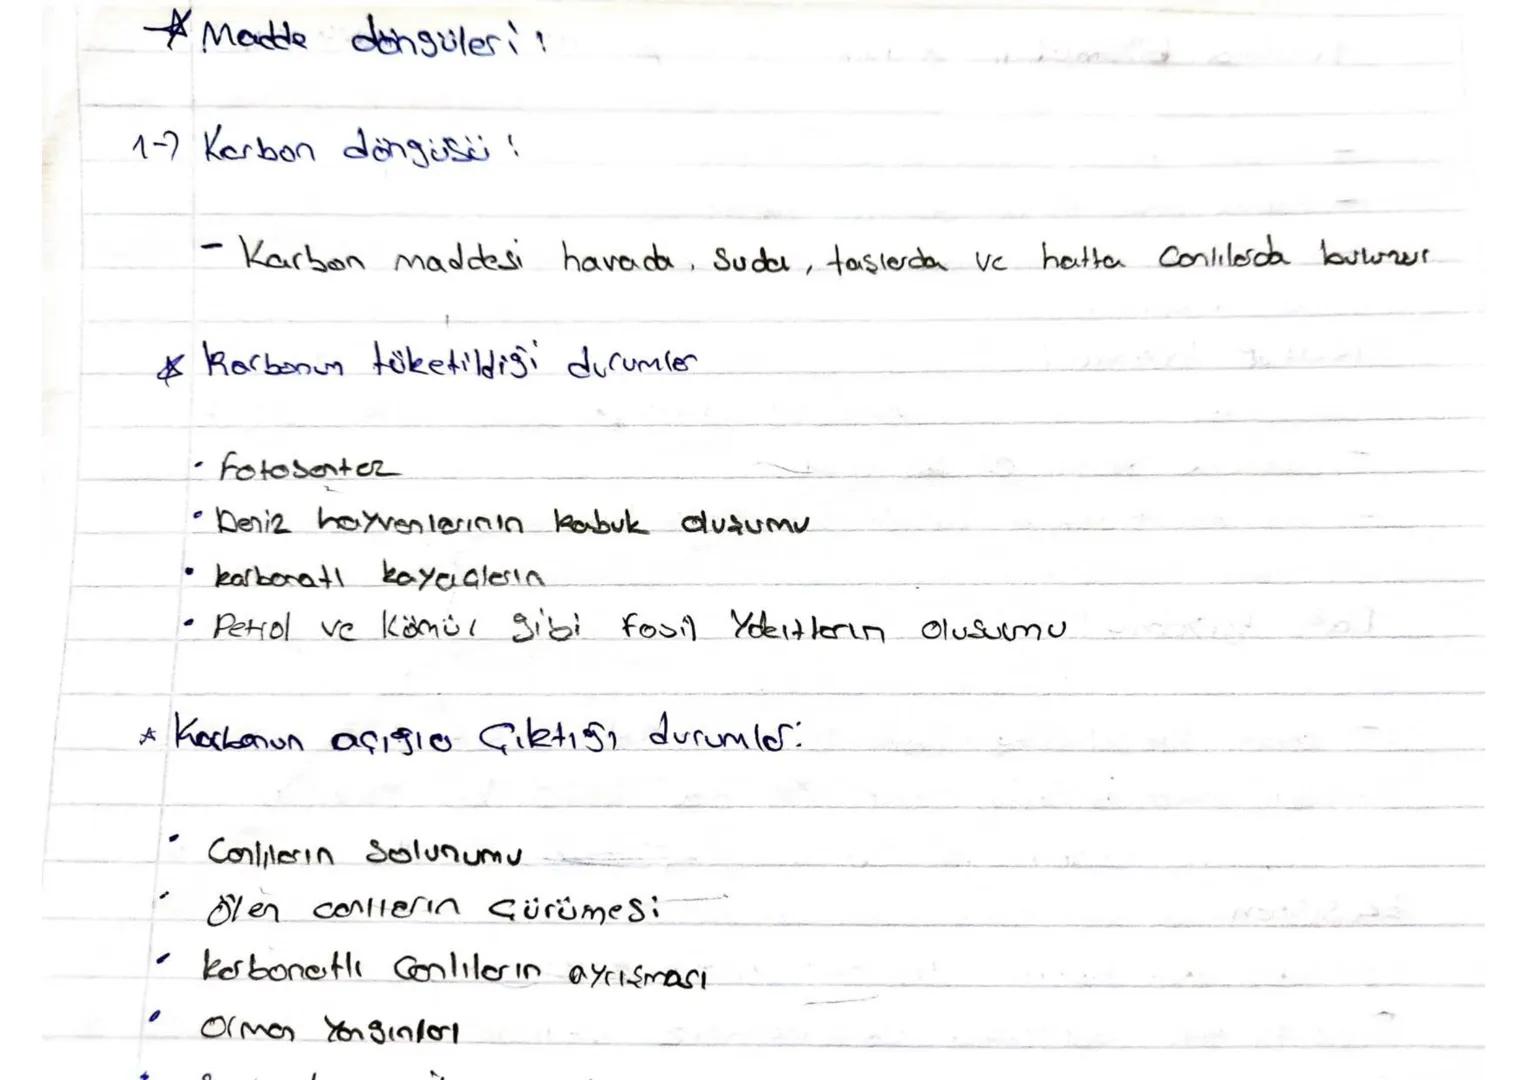 ☆ Madde döngüleri:
1-> Karbon döngüsü:
- Karbon maddesi havada, suda, taşlarda ve hatta canlılarda bulunur
☆ Karbonun tüketildiği durumlar
• Fotosentez
• Deniz hayvanlarının kabuk oluşumu
• karbonatlı kayaçların
• Petrol ve Kömür gibi fosil Yakıtların oluşumu
☆ Karbonun açığla Çıktığı durumlar:
• Canlıların Solunumu
• Ölen canlıların Çürümesi
• karbonatlı Canlıların ayrışması
• Orman Yangınları